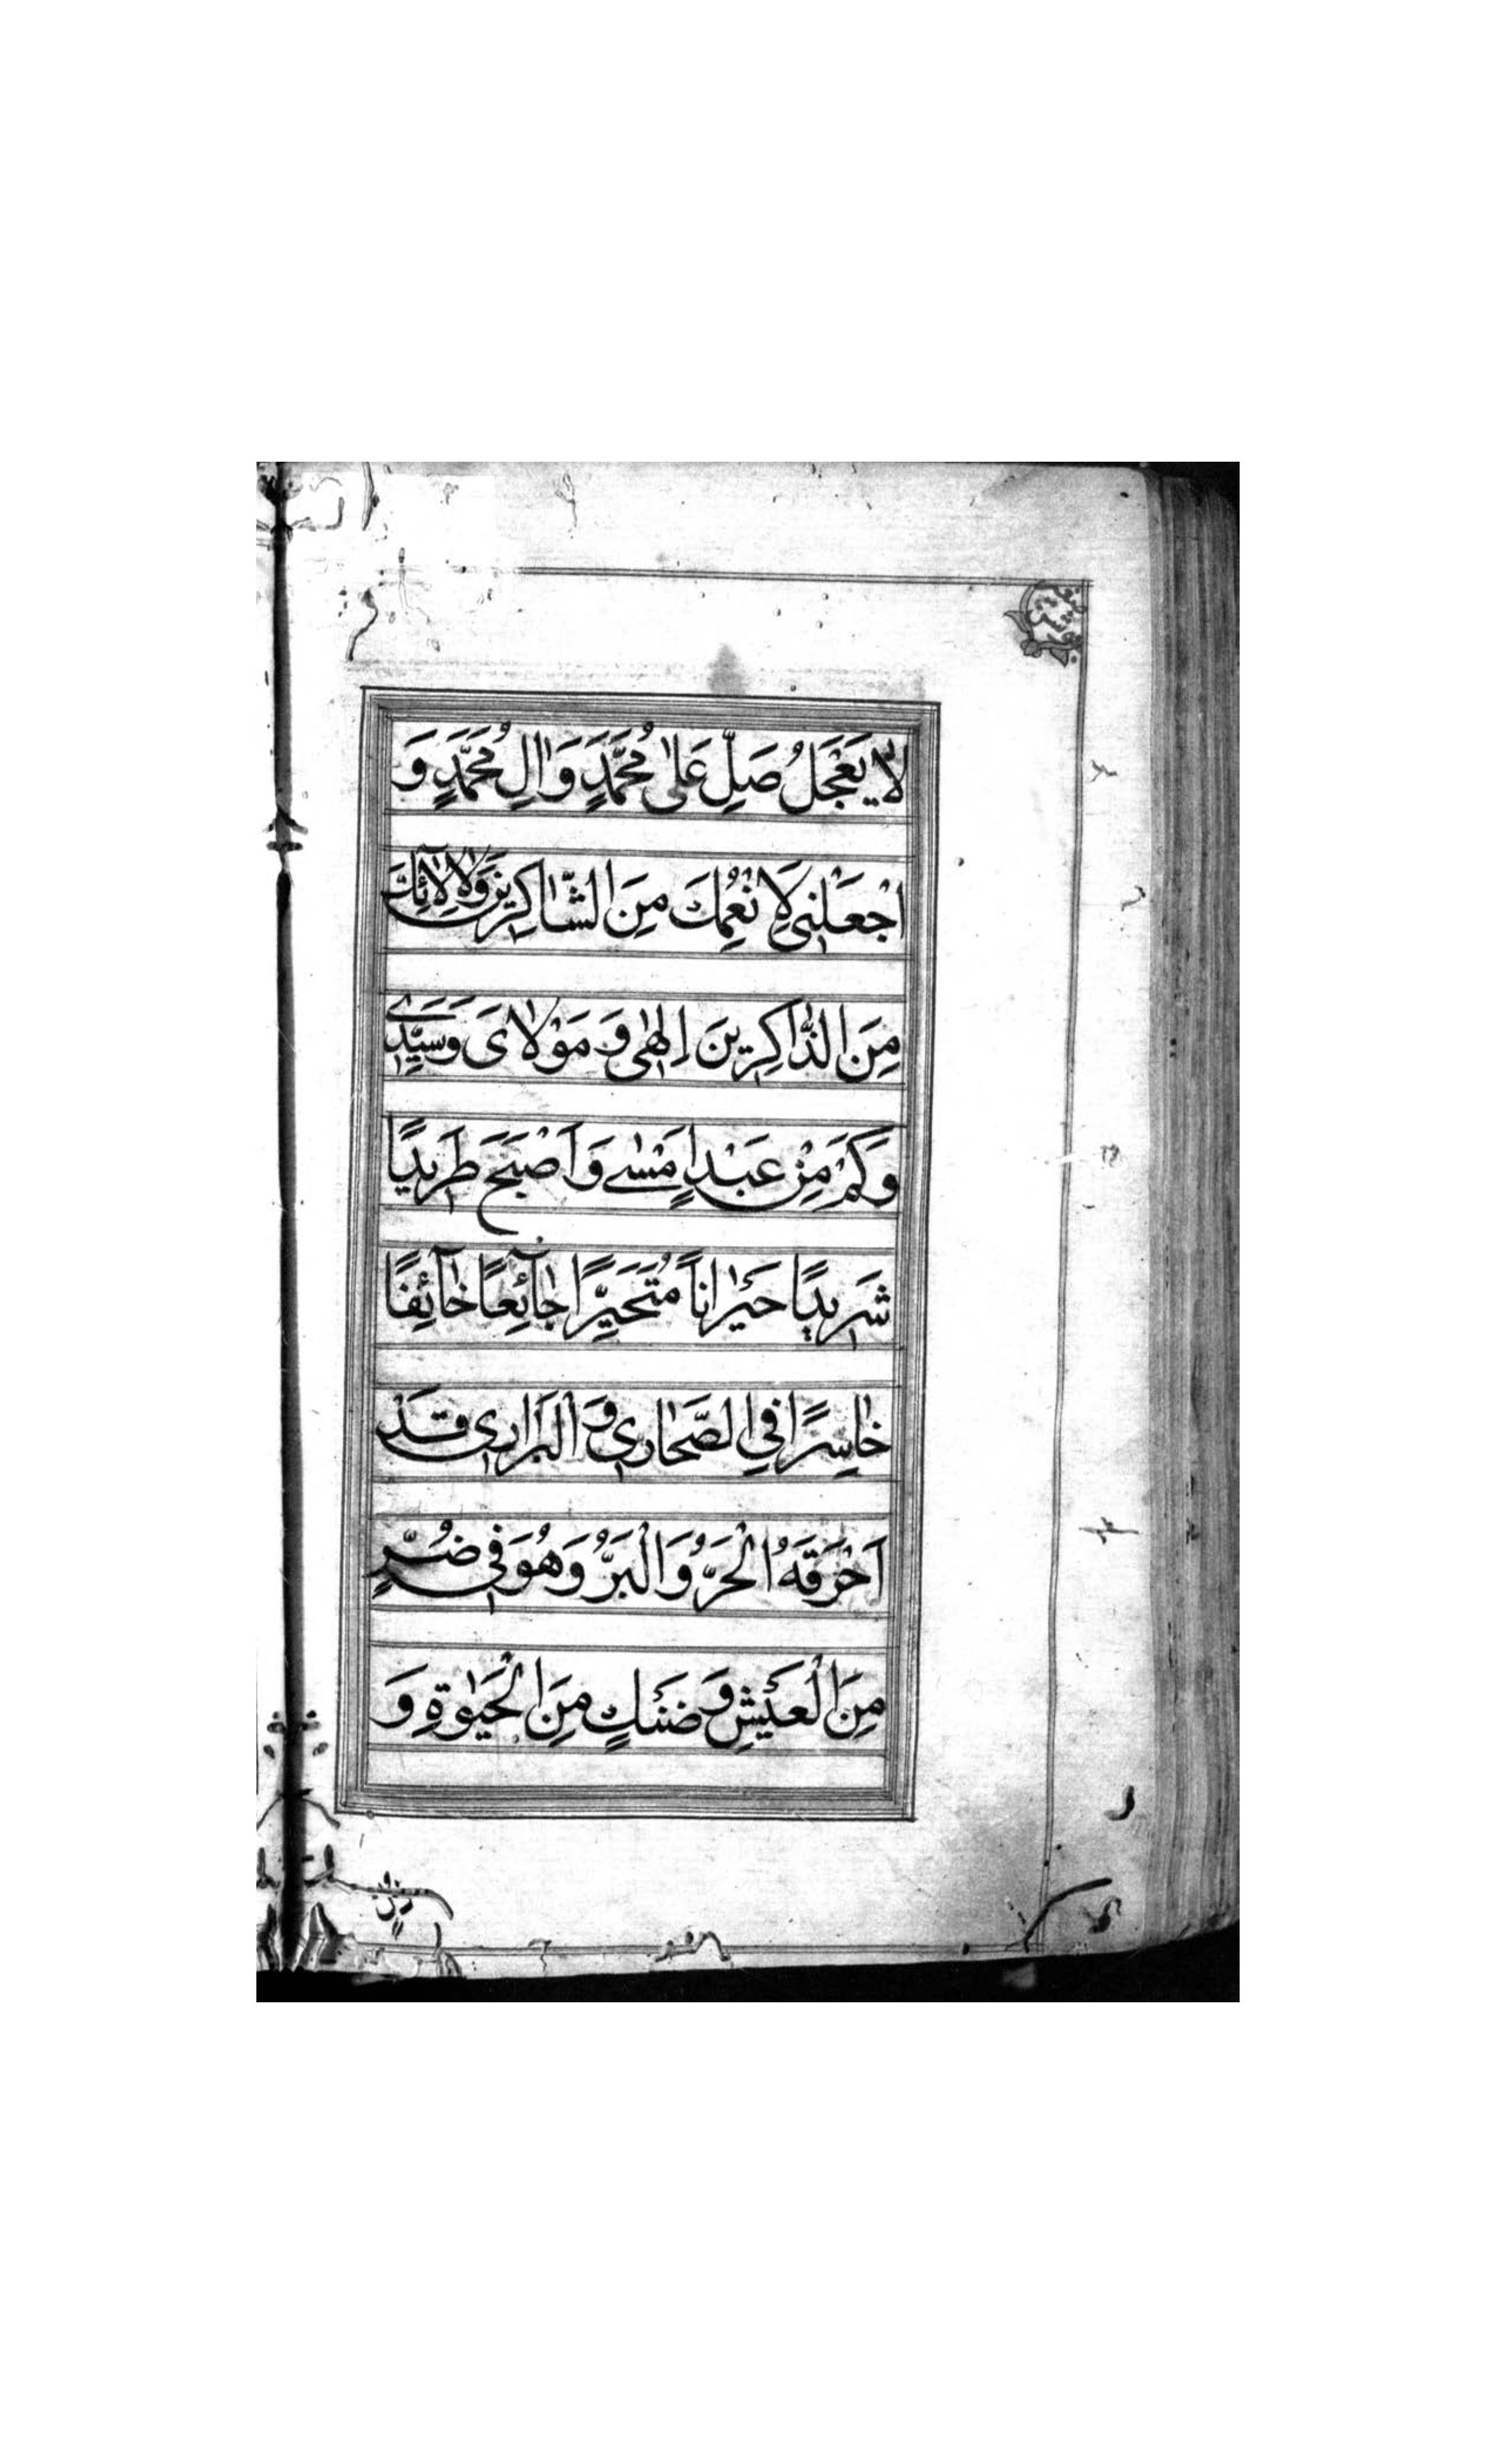 لَا يَعْجَلُ صَلِّ عَلٰى مُحَمَّدٍ وَاٰلِ مُحَمَّدٍ وَ
اجْعَلْنِي لِاَنْعُمِكَ مِنَ الشَّاكِرِينَ وَلِاٰلَآئِكَ
مِنَ الذَّاكِرِينَ اِلٰهِي وَ مَوْلَايَ وَسَيِّدِي
وَكَمْ مِنْ عَبْدٍ اَمْسٰى وَاَصْبَحَ طَرِيدًا
شَرِيدًا حَيْرَانًا مُتَحَيِّرًا جَآئِعًا خَآئِفًا
خَاسِرًا فِي الصَّحَارِي وَ الْبَرَارِي قَدْ
اَحْرَقَهُ الْحَرُّ وَ الْبَرُّ وَهُوَ فِي ضُرٍّ
مِنَ الْعَيْشِ وَ ضَنْكٍ مِنَ الْحَيٰوةِ وَ